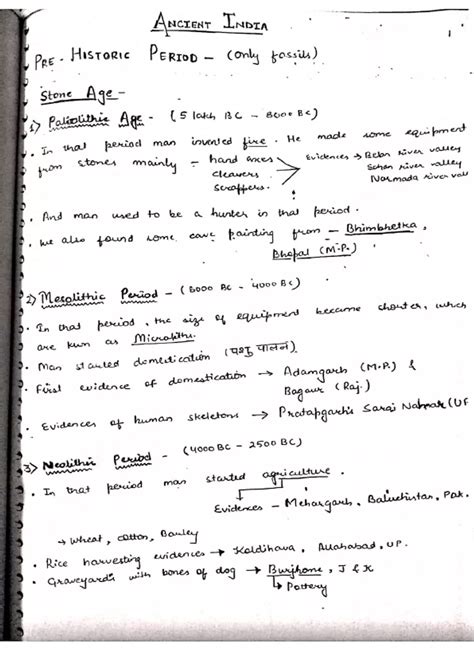 ANCIENT INDIA
1
PRE-HISTORIC PERIOD - (only fossils)
Stone Age -
1) Paliolithic Age - (5 lakh BC - 8000 BC)
. In that period man invented fire. He made some equipment
from stones mainly - hand axes
cleavers
scrappers.
Evidences → Belan river valley
Sohan river valley
Narmada river vall
. And man used to be a hunter in that period.
. We also found some cave painting from - Bhimbhetka,
Bhopal (M.P.)
2) Mesolithic Period - (8000 BC - 4000 BC)
. In that period, the size of equipment became shorter, which
are kwn as Microliths.
. Man started domestication (पशु पालन).
. First evidence of domestication → Adamgarh (M.P.) &
Bagaur (Raj.)
. Evidences of human skeletons → Pratapgarh's Sarai Nahar (UP
3) Neolithic Period - (4000 BC - 2500 BC)
. In that period man started agriculture.
Evidences - Mehargarh, Baluchistan, Pak.
→ Wheat, cotton, Barley
. Rice harvesting evidences → Koldihava, Allahabad, UP.
. Graveyards with bones of dog → Burjhome, J & K
↳ Pottery